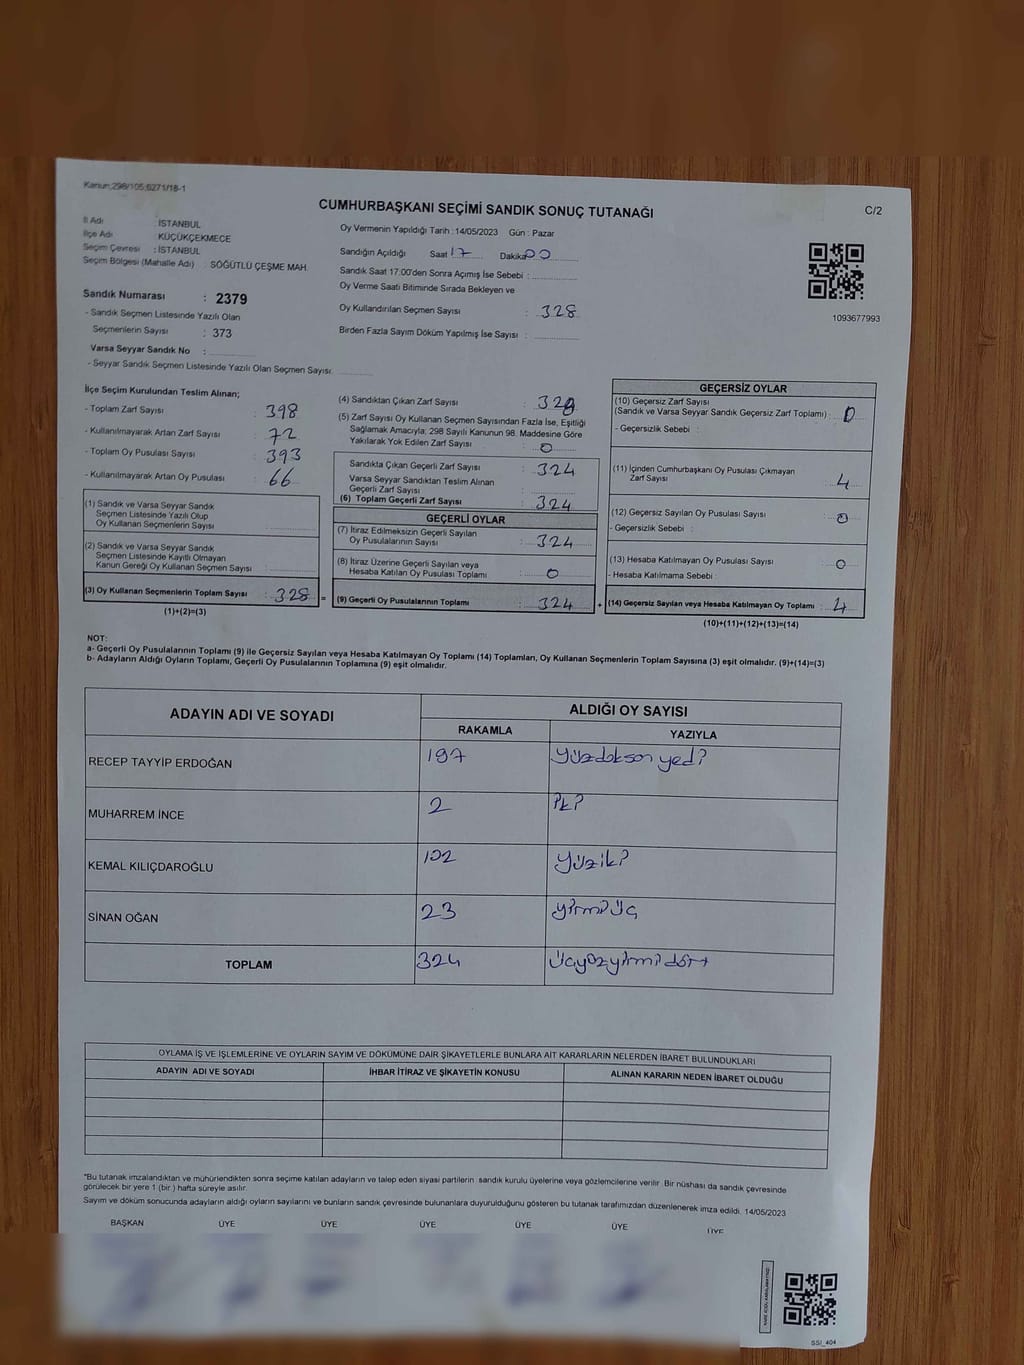 Kanun;298/105;6271/18-1
CUMHURBAŞKANI SEÇİMİ SANDIK SONUÇ TUTANAĞI
C/2
İl Adı : İSTANBUL
İlçe Adı : KÜÇÜKÇEKMECE
Seçim Çevresi : İSTANBUL
Seçim Bölgesi (Mahalle Adı) : SÖĞÜTLÜ ÇEŞME MAH.
Sandık Numarası : 2379
- Sandık Seçmen Listesinde Yazılı Olan
Seçmenlerin Sayısı : 373
Varsa Seyyar Sandık No :
- Seyyar Sandık Seçmen Listesinde Yazılı Olan Seçmen Sayısı:
Oy Vermenin Yapıldığı Tarih :14/05/2023 Gün : Pazar
Sandığın Açıldığı Saat 17 Dakika 00
Sandık Saat 17:00'den Sonra Açımış İse Sebebi :
Oy Verme Saati Bitiminde Sırada Bekleyen ve
Oy Kullandırılan Seçmen Sayısı : 328
Birden Fazla Sayım Döküm Yapılmış İse Sayısı :
1093677993
İlçe Seçim Kurulundan Teslim Alınan;
- Toplam Zarf Sayısı : 398
- Kullanılmayarak Artan Zarf Sayısı : 72
- Toplam Oy Pusulası Sayısı : 393
- Kullanılmayarak Artan Oy Pusulası : 66
(1) Sandık ve Varsa Seyyar Sandık
Seçmen Listesinde Yazılı Olup
Oy Kullanan Seçmenlerin Sayısı :
(2) Sandık ve Varsa Seyyar Sandık
Seçmen Listesinde Kayıtlı Olmayan
Kanun Gereği Oy Kullanan Seçmen Sayısı :
(3) Oy Kullanan Seçmenlerin Toplam Sayısı : 328 =
(1)+(2)=(3)
(4) Sandıktan Çıkan Zarf Sayısı : 328
(5) Zarf Sayısı Oy Kullanan Seçmen Sayısından Fazla İse, Eşitliği
Sağlamak Amacıyla; 298 Sayılı Kanunun 98. Maddesine Göre
Yakılarak Yok Edilen Zarf Sayısı : 0
Sandıkta Çıkan Geçerli Zarf Sayısı : 324
Varsa Seyyar Sandıktan Teslim Alınan
Geçerli Zarf Sayısı :
(6) Toplam Geçerli Zarf Sayısı : 324
GEÇERLİ OYLAR
(7) İtiraz Edilmeksizin Geçerli Sayılan
Oy Pusulalarının Sayısı : 324
(8) İtiraz Üzerine Geçerli Sayılan veya
Hesaba Katılan Oy Pusulası Toplamı : 0
(9) Geçerli Oy Pusulalarının Toplamı : 324 +
GEÇERSİZ OYLAR
(10) Geçersiz Zarf Sayısı
(Sandık ve Varsa Seyyar Sandık Geçersiz Zarf Toplamı) : 0
- Geçersizlik Sebebi :
(11) İçinden Cumhurbaşkanı Oy Pusulası Çıkmayan
Zarf Sayısı : 4
(12) Geçersiz Sayılan Oy Pusulası Sayısı : 0
- Geçersizlik Sebebi :
(13) Hesaba Katılmayan Oy Pusulası Sayısı : 0
- Hesaba Katılmama Sebebi :
(14) Geçersiz Sayılan veya Hesaba Katılmayan Oy Toplamı : 4
(10)+(11)+(12)+(13)=(14)
NOT:
a- Geçerli Oy Pusulalarının Toplamı (9) ile Geçersiz Sayılan veya Hesaba Katılmayan Oy Toplamı (14) Toplamları, Oy Kullanan Seçmenlerin Toplam Sayısına (3) eşit olmalıdır. (9)+(14)=(3)
b- Adayların Aldığı Oyların Toplamı, Geçerli Oy Pusulalarının Toplamına (9) eşit olmalıdır.
ADAYIN ADI VE SOYADI ALDIĞI OY SAYISI
RAKAMLA YAZIYLA
RECEP TAYYİP ERDOĞAN 197 Yüzdoksan yedi
MUHARREM İNCE 2 iki
KEMAL KILIÇDAROĞLU 102 Yüziki
SİNAN OĞAN 23 yirmiüç
TOPLAM 324 üçyüzyirmidört
OYLAMA İŞ VE İŞLEMLERİNE VE OYLARIN SAYIM VE DÖKÜMÜNE DAİR ŞİKAYETLERLE BUNLARA AİT KARARLARIN NELERDEN İBARET BULUNDUKLARI
ADAYIN ADI VE SOYADI İHBAR İTİRAZ VE ŞİKAYETİN KONUSU ALINAN KARARIN NEDEN İBARET OLDUĞU
"Bu tutanak imzalandıktan ve mühürlendikten sonra seçime katılan adayların ve talep eden siyasi partilerin sandık kurulu üyelerine veya gözlemcilerine verilir. Bir nüshası da sandık çevresinde
görülecek bir yere 1 (bir ) hafta süreyle asılır.
Sayım ve döküm sonucunda adayların aldığı oyların sayılarını ve bunların sandık çevresinde bulunanlara duyurulduğunu gösteren bu tutanak tarafımızdan düzenlenerek imza edildi. 14/05/2023
BAŞKAN ÜYE ÜYE ÜYE ÜYE ÜYE ÜYE
SSI_404